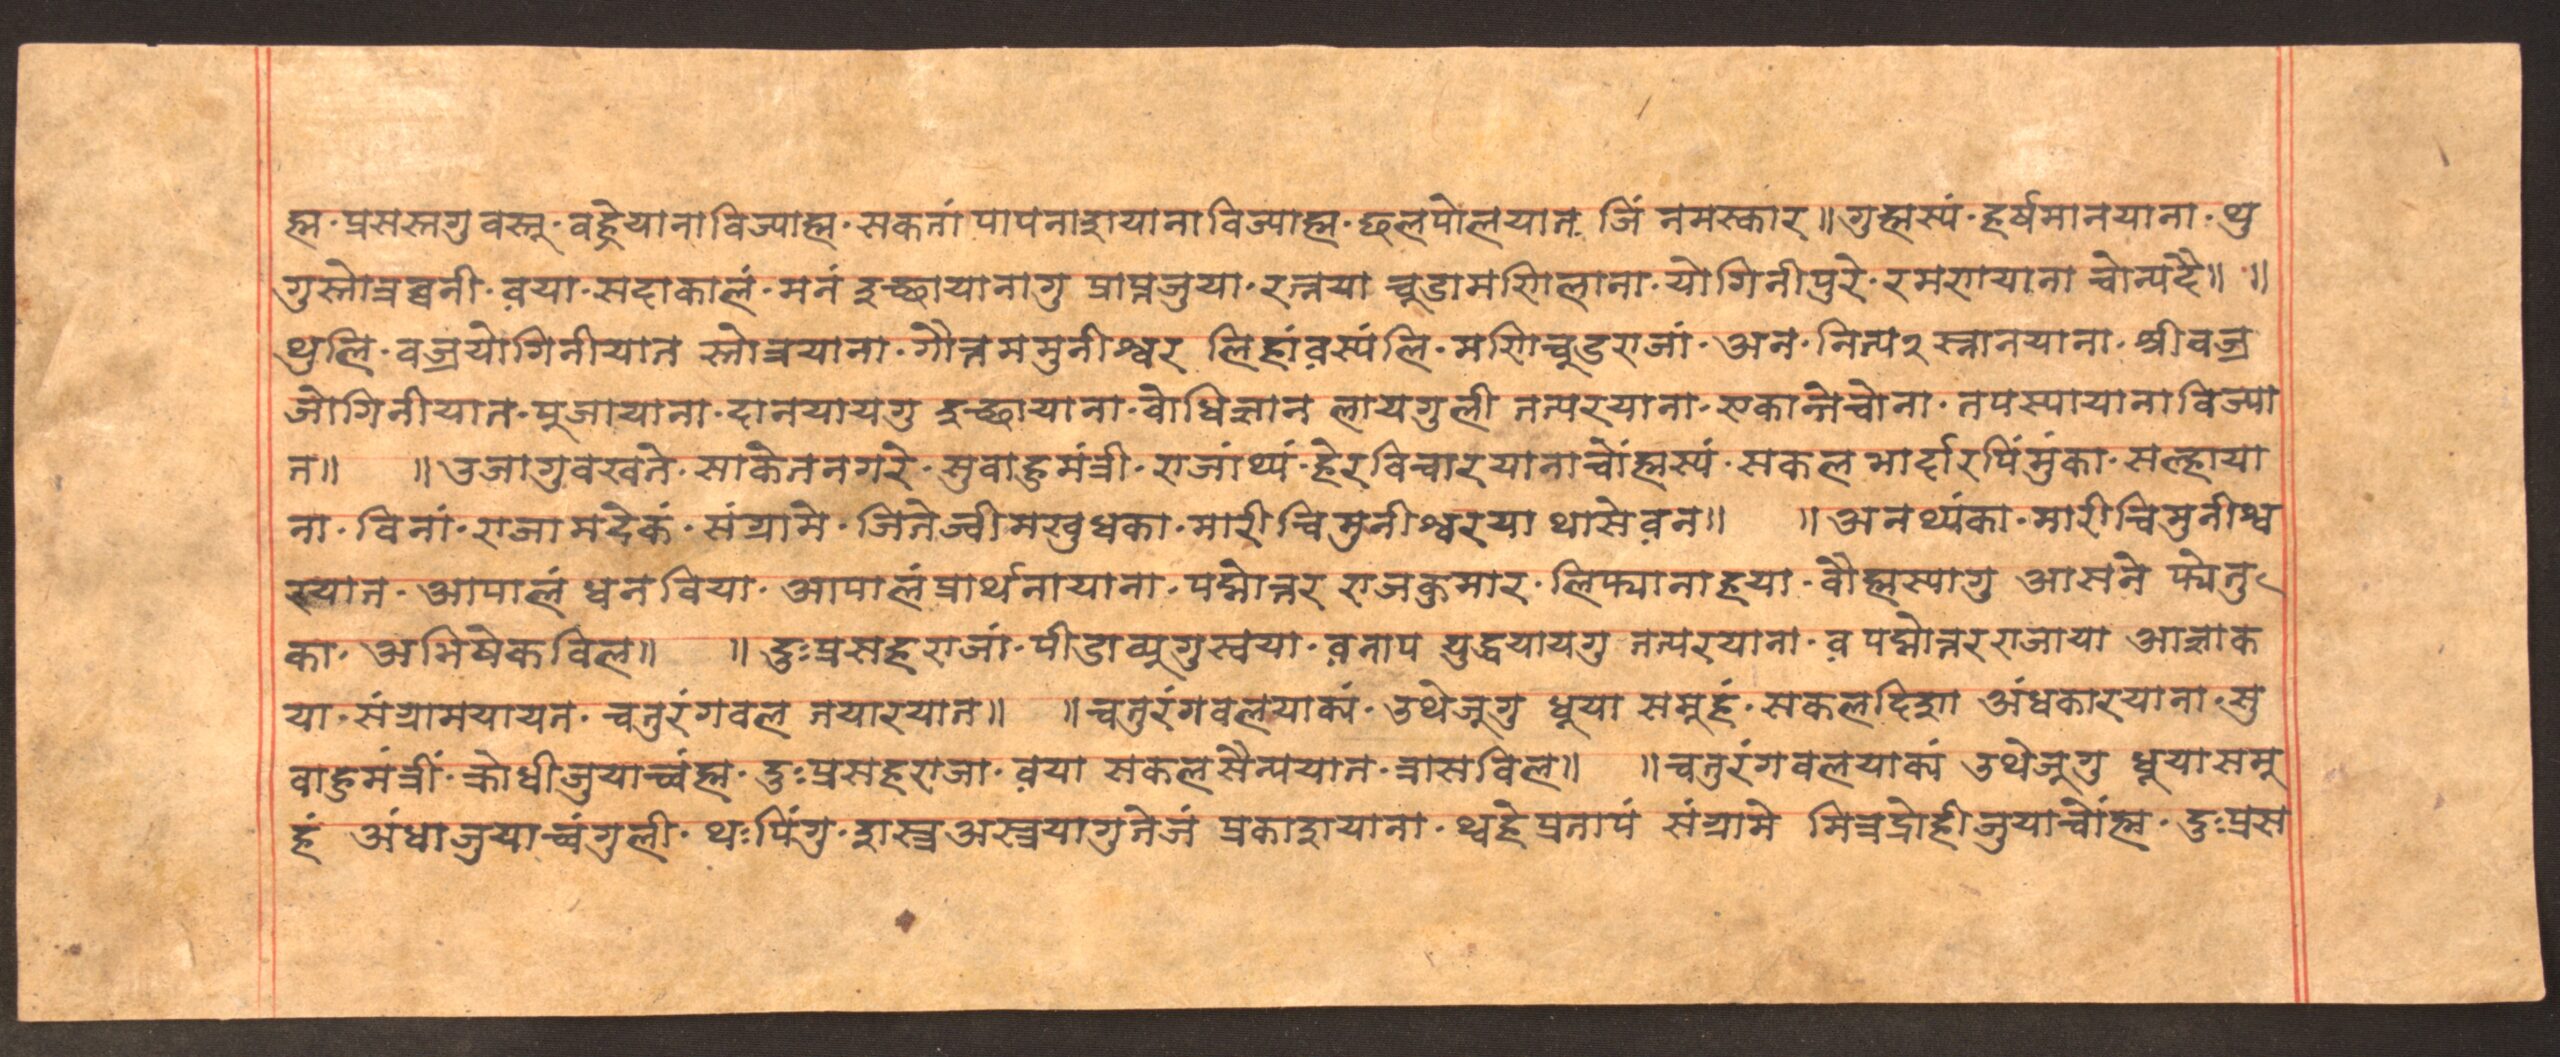 ह्म·प्रसस्तगु वस्तू·वहेयानाविज्याह्म·सकतां पापनाशयानाविज्याह्म·छलपोलयात जिं नमस्कार॥गुह्मस्यं·हर्षमानयाना·थु
गुस्तोत्रब्वनी·व़या·सदाकालं·मनं इच्छायानागु प्राप्तजुया·रत्नया चूडामणिलाना·योगिनीपुरे·रमणयाना चोन्यदै॥ ॥
थुलि·वज्रयोगिनीयात स्तोत्रयाना·गौत्तममुनीश्वर लिहांव़स्यंलि·मणिचूडराजां·अन·नित्य२स्नानयाना·श्रीवज्र
जोगिनीयात·पूजायाना·दानयायगु इच्छायाना·वोधिज्ञान लायगुली तत्परयाना·एकान्तेचोना·तपस्यायानाविज्या
त॥ ॥उजागुवखते·साकेतनगरे·सुवाहुमंत्री·राजांथ्यं·हेरविचारयानाचोंह्मस्यं·सकल भार्दारपिंमुंका·सल्हाया
ना·विनां·राजामदेकं·संग्रामे·जितेज्वीमखुधका·मारीचिमुनीश्वरया थासेव़न॥ ॥अनथ्यंका·मारीचिमुनीश्व
रयात·आपालं ध्वनविया·आपालंप्रार्थनायाना·पद्मोत्तर राजकुमार·लिफ्यानाहया·वौह्मस्यागु आसने फ्येतु
का·अभिषेकविल॥ ॥दुःप्रसहराजां·पीडाव्यूगुस्वया·व़नाप युद्धयायगु तत्परयाना·व़पद्मोत्तरराजाया आज्ञाक
या·संग्रामयायत·चतुरंगवल तयारयात॥ ॥चतुरंगवलयाक्यं·उथेजूगु धूया समूहं·सकलदिशा अंधकारयाना·सु
वाहुमंत्रीं·क्रोधीजुयाच्वंह्म·दुःप्रसहराजा·व़या सकलसैन्ययात·त्रासविल॥ ॥चतुरंगवलयाक्यं उथेजूगु धूयासमू
हं अंधाजुयाच्वंगुली·थःपिंगु·शस्त्रअस्त्रयागुतेजं प्रकाशयाना·थ्वहेप्रतापं संग्रामे मित्रद्रोहीजुयाचोंह्म·दुःप्रस